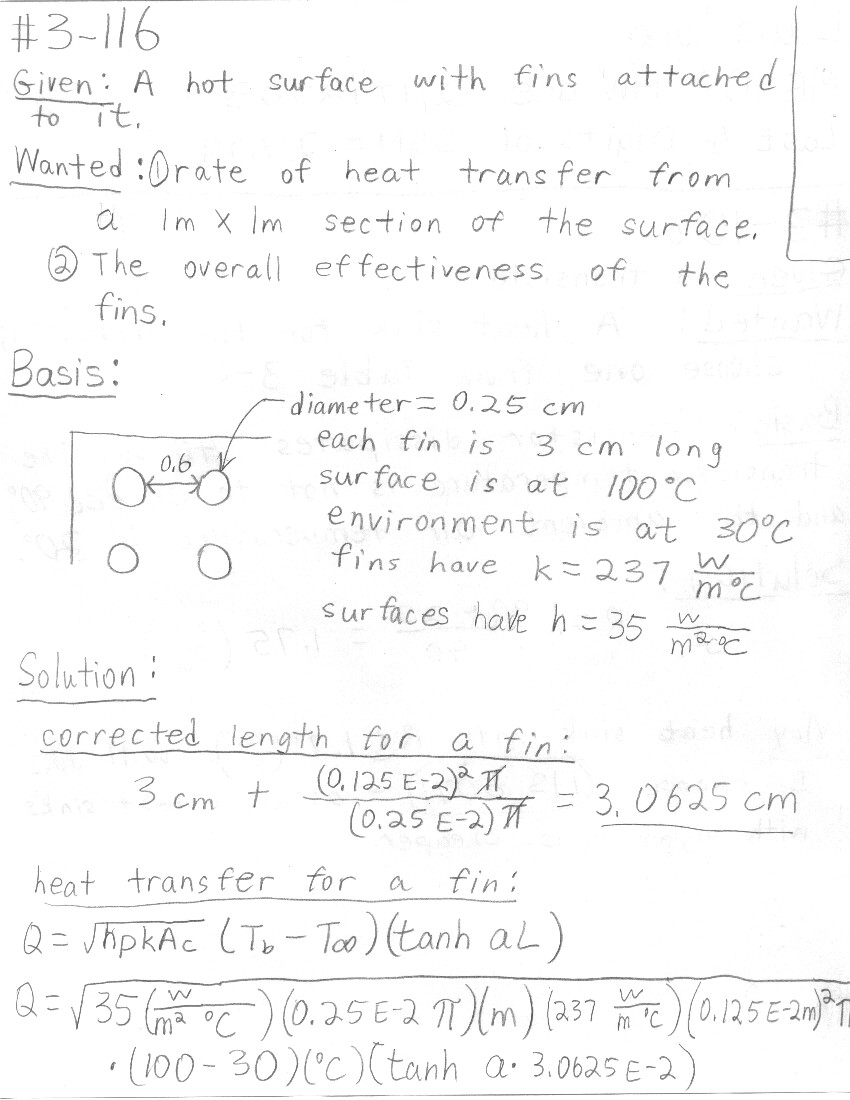 #3-116
Given: A hot surface with fins attached
to it.
Wanted: ① rate of heat transfer from
a 1m X 1m section of the surface.
② The overall effectiveness of the
fins.
Basis:
diameter = 0.25 cm
each fin is 3 cm long
0.6
surface is at 100°C
environment is at 30°C
fins have k = 237 W/m°C
surfaces have h = 35 W/m²°C
Solution:
corrected length for a fin:
3 cm + (0.125 E-2)² π / (0.25 E-2) π = 3.0625 cm
heat transfer for a fin:
Q = √hpkAc (Tb - T∞)(tanh aL)
Q = √35 (W/m² °C)(0.25 E-2 π)(m)(237 W/m °C)(0.125E-2m)²π
· (100-30)(°C)(tanh a· 3.0625E-2)